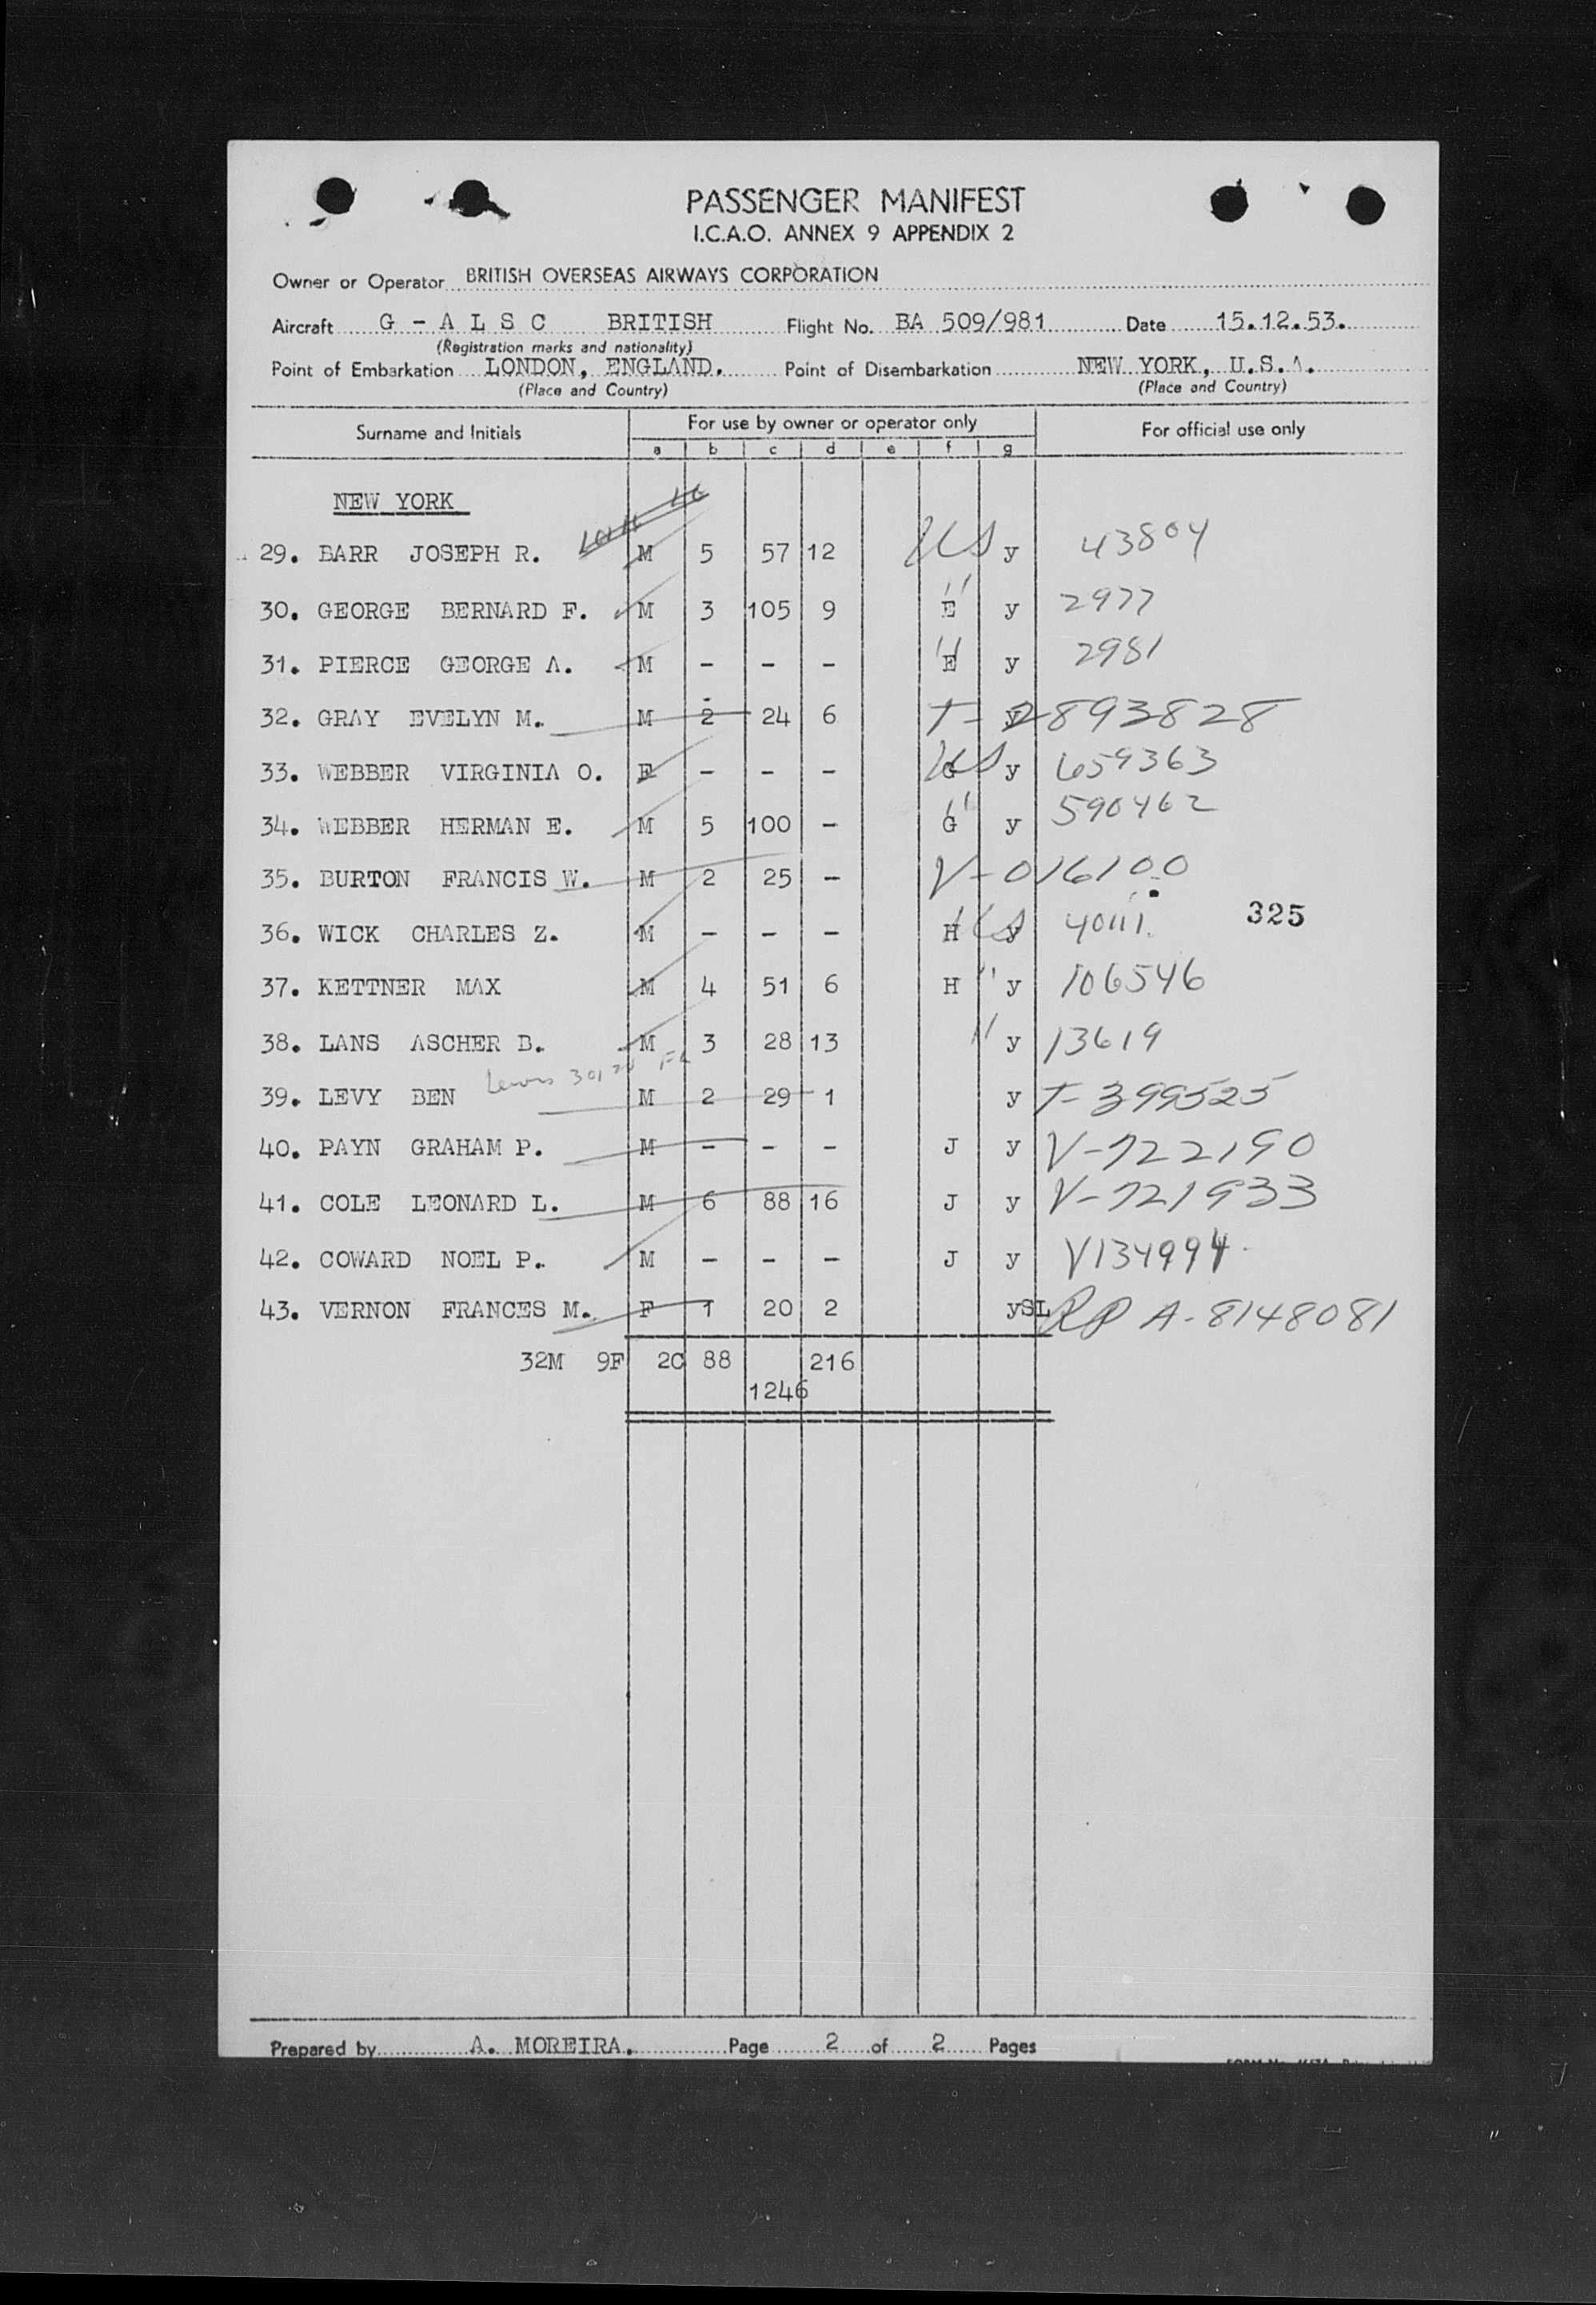 PASSENGER MANIFEST
I.C.A.O. ANNEX 9 APPENDIX 2
Owner or Operator BRITISH OVERSEAS AIRWAYS CORPORATION
Aircraft G - A L S C BRITISH Flight No. BA 509/981 Date 15.12.53.
(Registration marks and nationality)
Point of Embarkation LONDON, ENGLAND. Point of Disembarkation NEW YORK, U.S.A.
(Place and Country) (Place and Country)
Surname and Initials For use by owner or operator only For official use only
a b c d e f g
NEW YORK
29. BARR JOSEPH R. M 5 57 12 US y 43804
30. GEORGE BERNARD F. M 3 105 9 " E y 2977
31. PIERCE GEORGE A. M - - - " E y 2981
32. GRAY EVELYN M. M 2 24 6 y T-2893828
33. WEBBER VIRGINIA O. F - - - US G y 659363
34. WEBBER HERMAN E. M 5 100 - " G y 590462
35. BURTON FRANCIS W. M 2 25 - V-016100
36. WICK CHARLES Z. M - - - H US y 40111. 325
37. KETTNER MAX M 4 51 6 H " y 106546
38. LANS ASCHER B. M 3 28 13 " y 13619
39. LEVY BEN M 2 29 1 y T-399525
40. PAYN GRAHAM P. M - - - J y V-722190
41. COLE LEONARD L. M 6 88 16 J y V-721933
42. COWARD NOEL P. M - - - J y V134994
43. VERNON FRANCES M. F 1 20 2 ySL RP A-8148081
32M 9F 2C 88 216
1246
Prepared by A. MOREIRA. Page 2 of 2 Pages